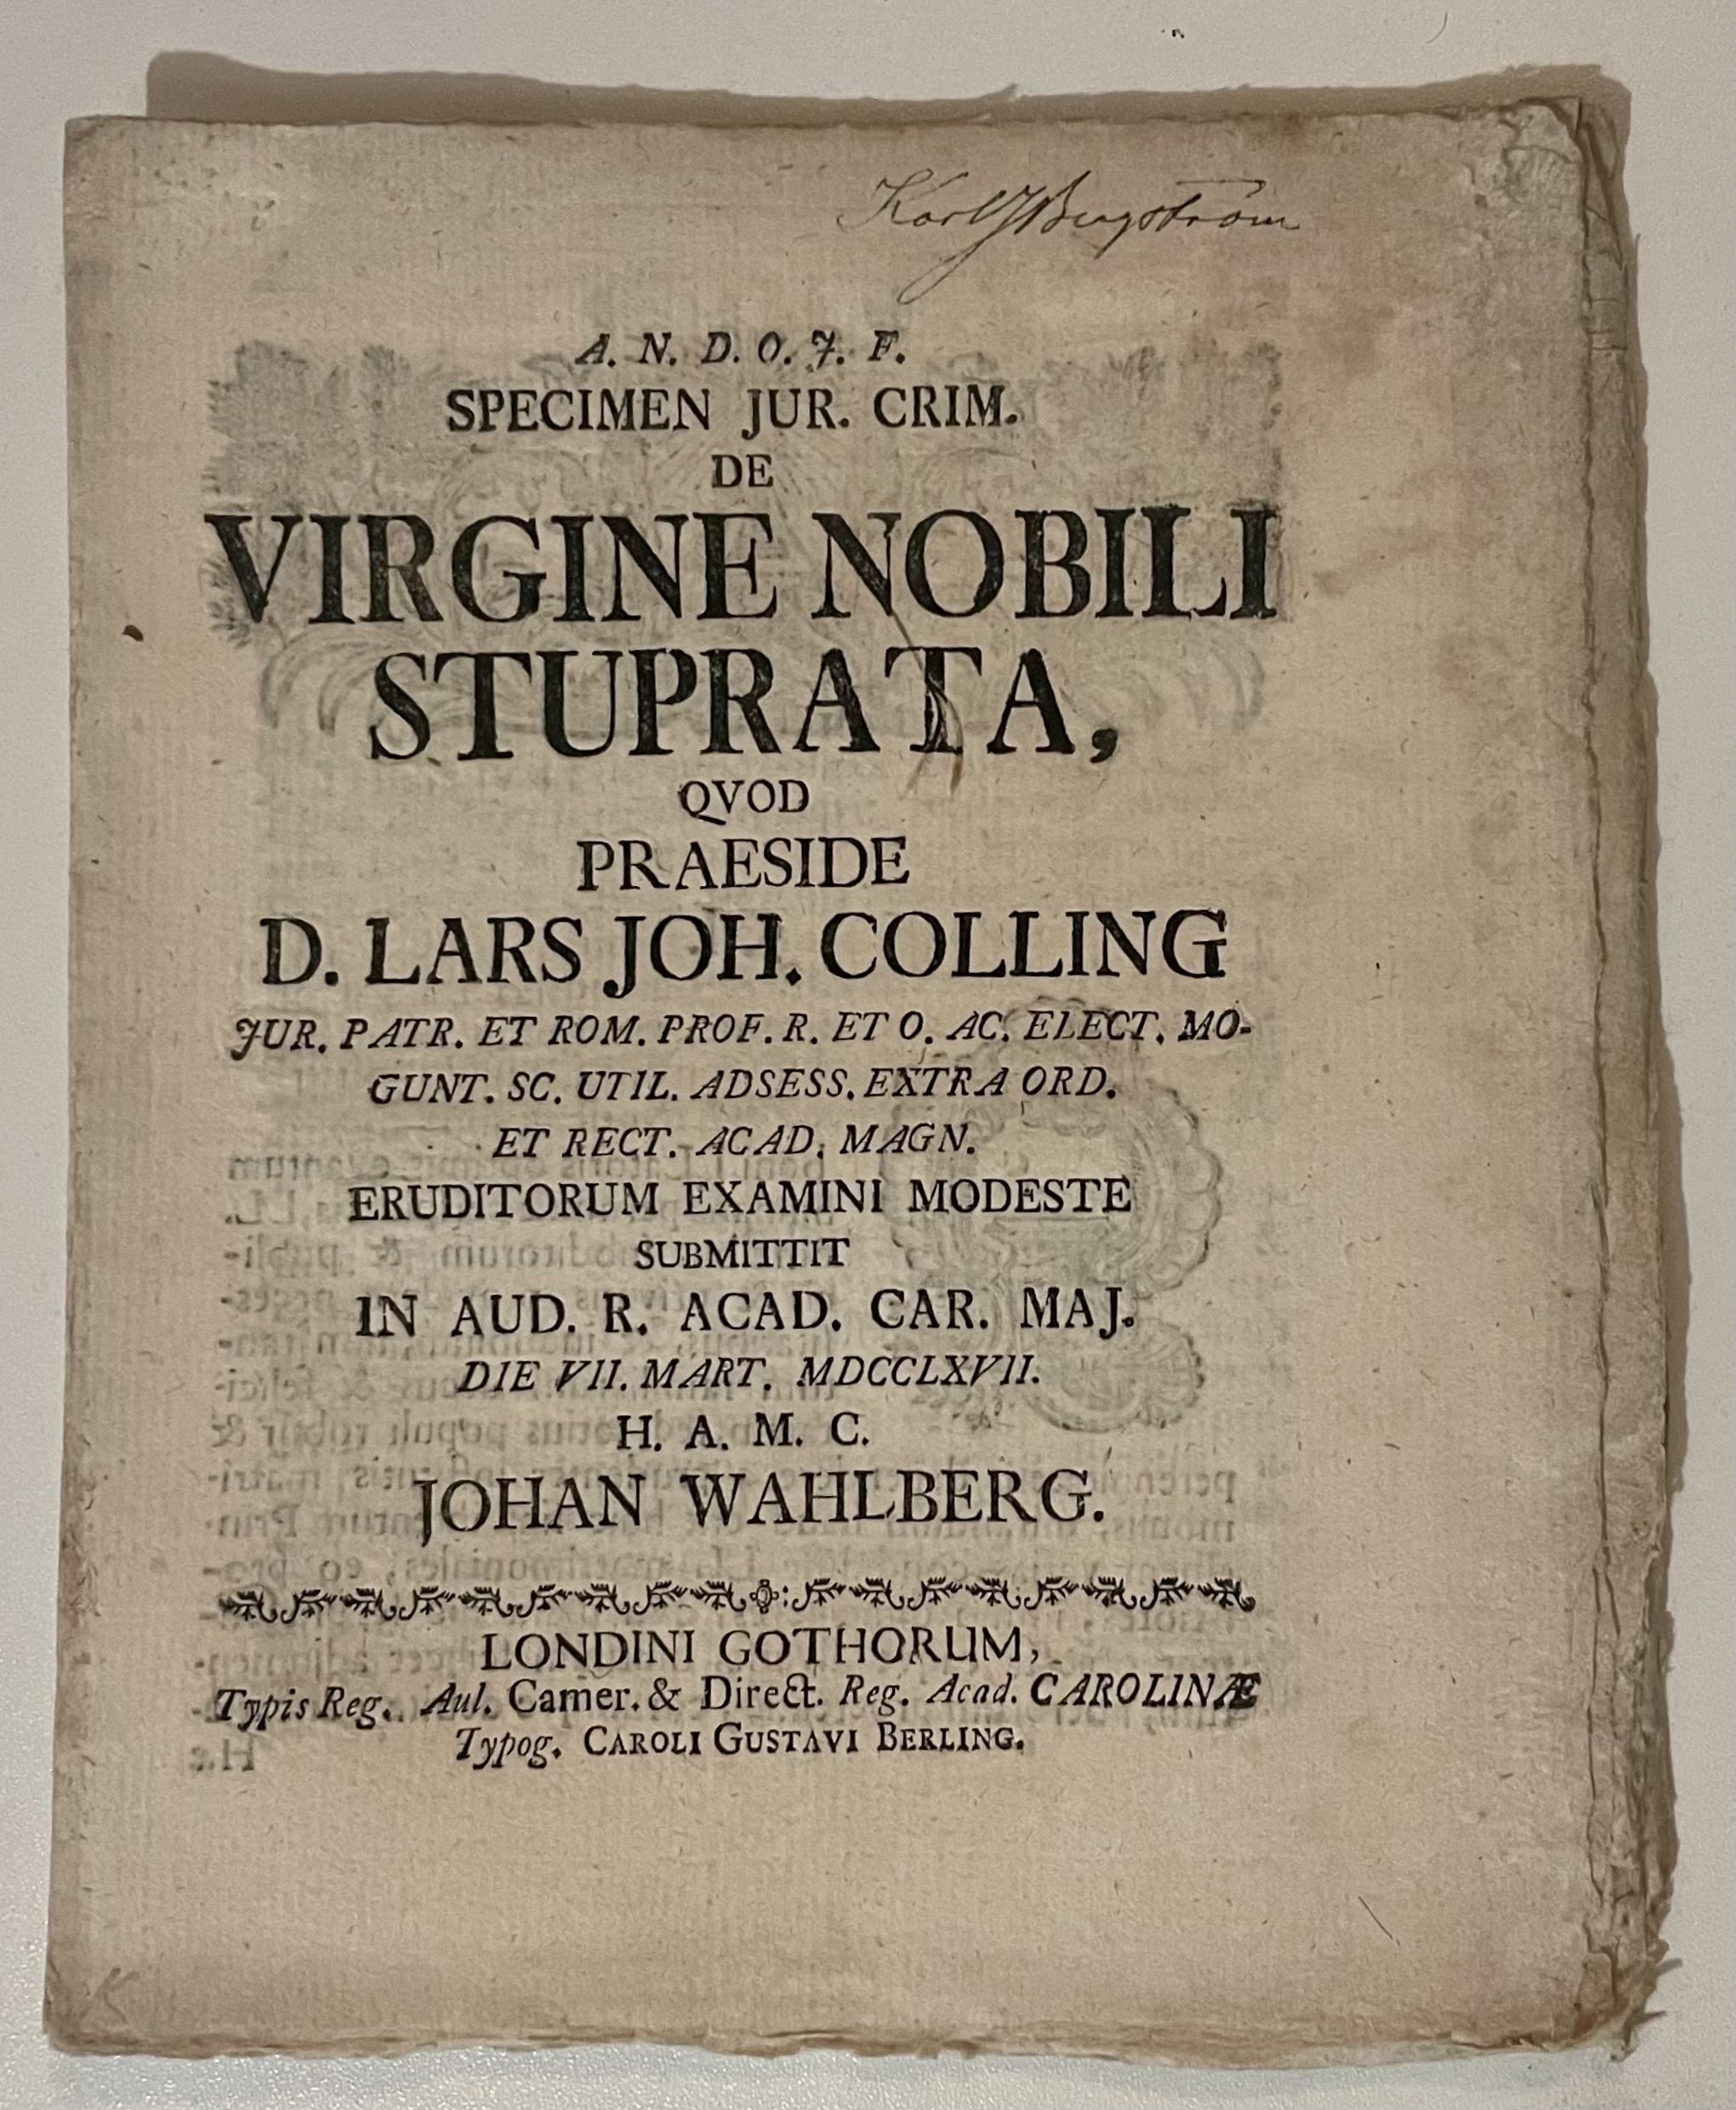 Karl J Bergström
A. N. D. O. J. F.
SPECIMEN JUR. CRIM.
DE
VIRGINE NOBILI
STUPRATA,
QVOD
PRAESIDE
D. LARS JOH. COLLING
JUR. PATR. ET ROM. PROF. R. ET O. AC. ELECT. MO-
GUNT. SC. UTIL. ADSESS. EXTRA ORD.
ET RECT. ACAD. MAGN.
ERUDITORUM EXAMINI MODESTE
SUBMITTIT
IN AUD. R. ACAD. CAR. MAJ.
DIE VII. MART. MDCCLXVII.
H. A. M. C.
JOHAN WAHLBERG.
LONDINI GOTHORUM,
Typis Reg. Aul. Camer. & Direct. Reg. Acad. CAROLINÆ
Typog. CAROLI GUSTAVI BERLING.